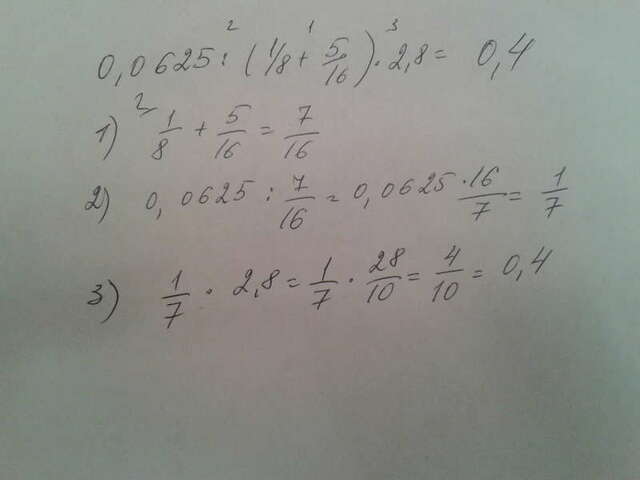 2 1 3
0,0625 : (1/8 + 5/16) · 2,8 = 0,4
1) 2/ 1/8 + 5/16 = 7/16
2) 0,0625 : 7/16 = 0,0625 · 16/7 = 1/7
3) 1/7 · 2,8 = 1/7 · 28/10 = 4/10 = 0,4